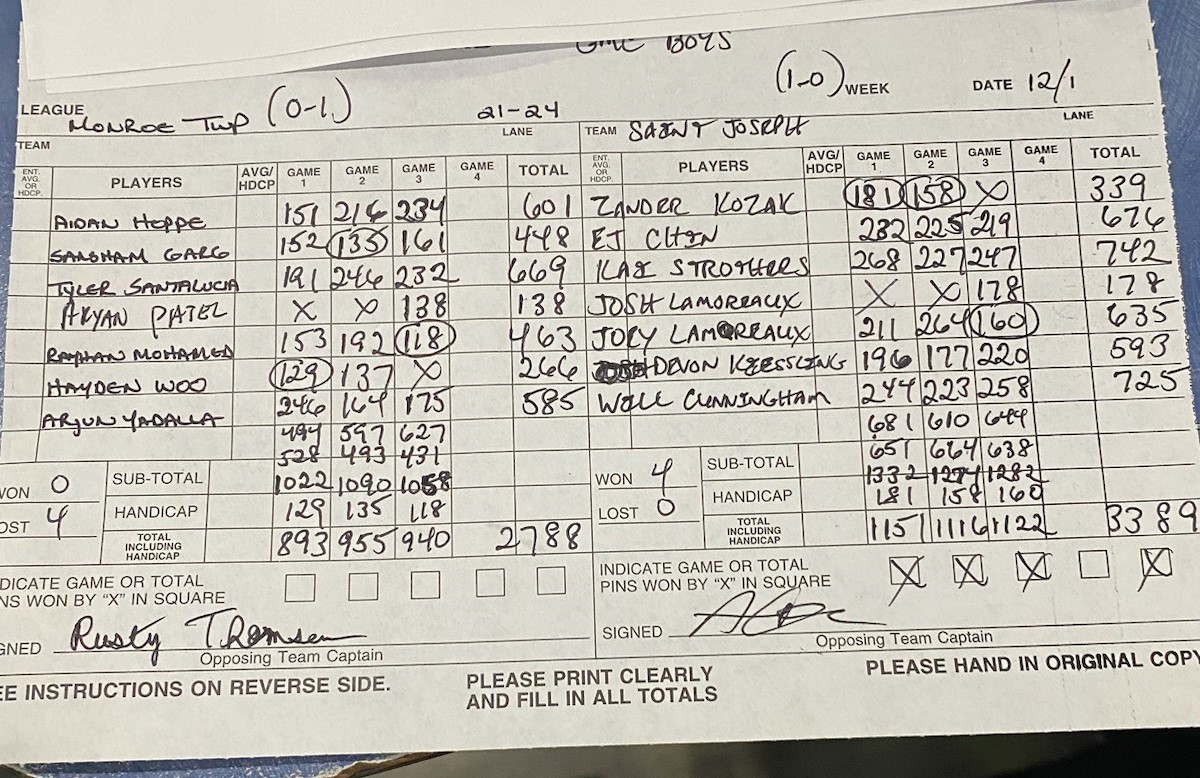 GMC BOYS
LEAGUE (0-1) (1-0) WEEK DATE 12/1
MONROE TWP 21-24 LANE TEAM SAINT JOSEPH LANE
TEAM
ENT. AVG. OR HDCP. PLAYERS AVG/ HDCP GAME 1 GAME 2 GAME 3 GAME 4 TOTAL ENT. AVG. OR HDCP. PLAYERS AVG/ HDCP GAME 1 GAME 2 GAME 3 GAME 4 TOTAL
AIDAN HEPPE 151 216 234 601 ZANDER KOZAK 181 158 X 339
SAKSHAM GARG 152 135 161 448 EJ CHIN 232 225 219 676
TYLER SANTALUCIA 191 246 232 669 KAI STROTHERS 268 227 247 742
ARYAN PATEL X X 138 138 JOSH LAMOREAUX X X 178 178
RAYHAN MOHAMED 153 192 118 463 JOEY LAMOREAUX 211 264 160 635
HAYDEN WOO 129 137 X 266 DEVON KIESSLING 196 177 220 593
ARJUN YADALLA 246 164 175 585 WILL CUNNINGHAM 244 223 258 725
494 597 627 681 610 644
528 493 431 651 664 638
WON 0 SUB-TOTAL 1022 1090 1058 WON 4 SUB-TOTAL 1332 1274 1282
LOST 4 HANDICAP 129 135 118 LOST 0 HANDICAP 181 158 160
TOTAL INCLUDING HANDICAP 893 955 940 2788 TOTAL INCLUDING HANDICAP 1151 1116 1122 3389
INDICATE GAME OR TOTAL INDICATE GAME OR TOTAL X X X X
PINS WON BY "X" IN SQUARE PINS WON BY "X" IN SQUARE
SIGNED Rusty Thomsen SIGNED
Opposing Team Captain Opposing Team Captain
SEE INSTRUCTIONS ON REVERSE SIDE. PLEASE PRINT CLEARLY PLEASE HAND IN ORIGINAL COPY
AND FILL IN ALL TOTALS